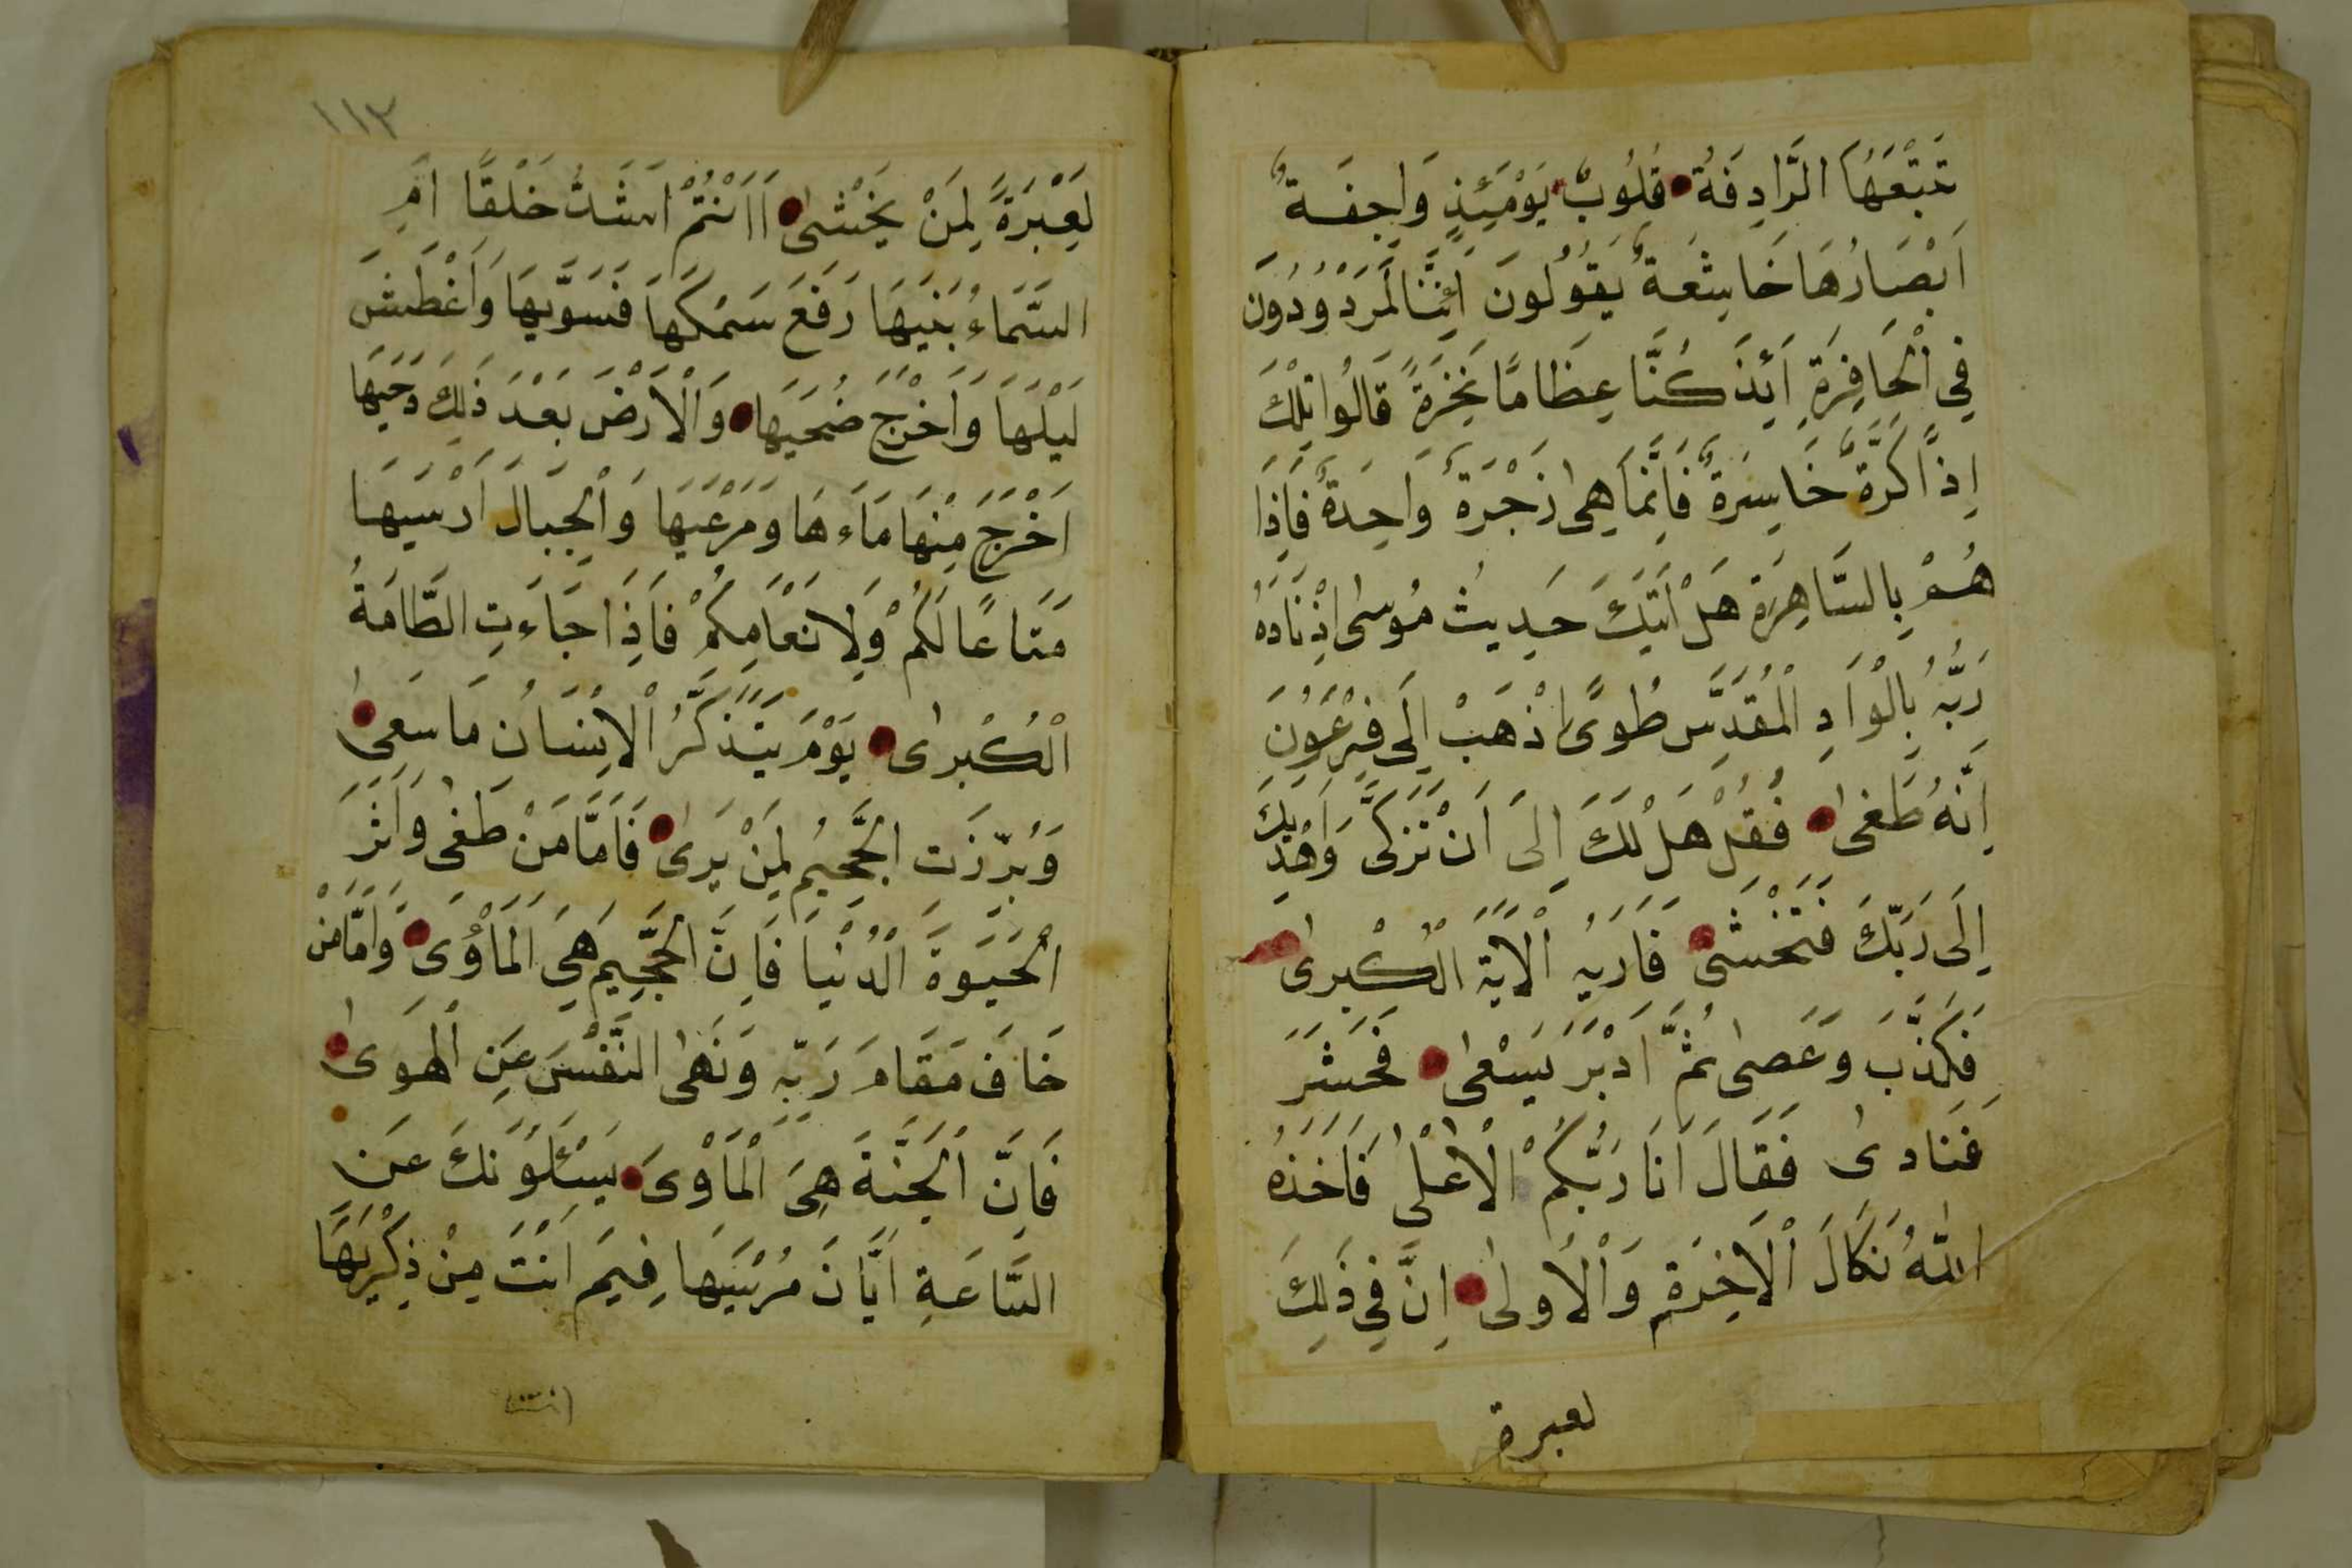 تَتْبَعُهَا الرَّادِفَةُ قُلُوبٌ يَوْمَئِذٍ وَاجِفَةٌ
اَبْصَارُهَا خَاشِعَةٌ يَقُولُونَ اَئِنَّا لَمَرْدُودُونَ
فِي الْحَافِرَةِ اَئِذَ كُنَّا عِظَامًا نَخِرَةً قَالُوا تِلْكَ
اِذًا كَرَّةٌ خَاسِرَةٌ فَاِنَّمَا هِىَ زَجْرَةٌ وَاحِدَةٌ فَاِذَا
هُمْ بِالسَّاهِرَةِ هَلْ اَتٰيكَ حَدِيثُ مُوسٰى اِذْ نَادٰهُ
رَبُّهُ بِالْوَادِ الْمُقَدَّسِ طُوًى اِذْهَبْ اِلَى فِرْعَوْنَ
اِنَّهُ طَغٰى فَقُلْ هَلْ لَكَ اِلَى اَنْ تَزَكّٰى وَاَهْدِيَكَ
اِلَى رَبِّكَ فَتَخْشٰى فَاَرٰيهُ الْاٰيَةَ الْكُبْرٰى
فَكَذَّبَ وَعَصٰى ثُمَّ اَدْبَرَ يَسْعٰى فَحَشَرَ
فَنَادٰى فَقَالَ اَنَا رَبُّكُمْ الْاَعْلٰى فَاَخَذَهُ
اللهُ نَكَالَ الْاٰخِرَةِ وَالْاُولٰى اِنَّ فِي ذَلِكَ
لعبرة
١١٣
لَعِبْرَةً لِمَنْ يَخْشٰى ءَاَنْتُمْ اَشَدُّ خَلْقًا اَمِ
السَّمَاءُ بَنٰيهَا رَفَعَ سَمْكَهَا فَسَوّٰيهَا وَاَغْطَشَ
لَيْلَهَا وَاَخْرَجَ ضُحٰيهَا وَالْاَرْضَ بَعْدَ ذَلِكَ دَحٰيهَا
اَخْرَجَ مِنْهَا مَاءَهَا وَمَرْعٰيهَا وَالْجِبَالَ اَرْسٰيهَا
مَتَاعًا لَكُمْ وَلِاَنْعَامِكُمْ فَاِذَا جَاءَتِ الطَّامَةُ
الْكُبْرٰى يَوْمَ يَتَذَكَّرُ الْاِنْسَانُ مَا سَعٰى
وَبُرِّزَتِ الْجَحِيمُ لِمَنْ يَرٰى فَاَمَّا مَنْ طَغٰى وَاٰثَرَ
الْحَيٰوةَ الدُّنْيَا فَاِنَّ الْجَحِيمَ هِيَ الْمَأْوٰى وَاَمَّا مَنْ
خَافَ مَقَامَ رَبِّهِ وَنَهَى النَّفْسَ عَنِ الْهَوٰى
فَاِنَّ الْجَنَّةَ هِيَ الْمَأْوٰى يَسْئَلُونَكَ عَنِ
السَّاعَةِ اَيَّانَ مُرْسٰيهَا فِيمَ اَنْتَ مِنْ ذِكْرٰيهَا